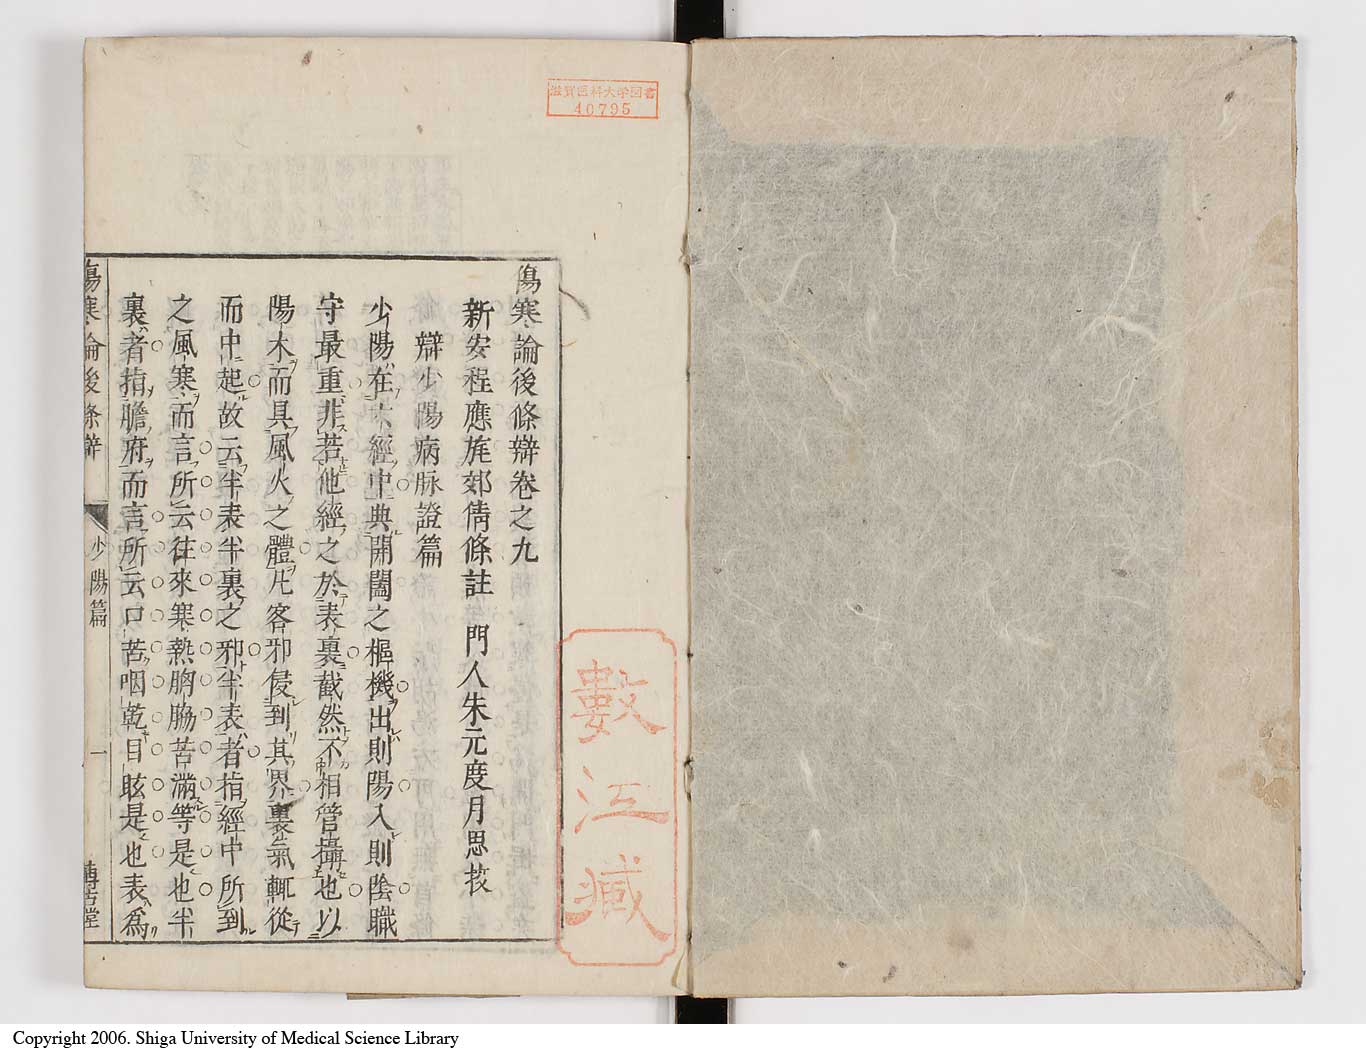 滋賀医科大学図書
40795
傷寒論後條辯卷之九
新安程應旄郊倩條註　門人朱元度月思挍
辯少陽病脉證篇
少陽在六經中典開闔之樞機出則陽入則陰職
守最重非若他經之於表裏截然不相管攝也以
陽木而具風火之體凡客邪侵到其界裏氣輒從
而中起故云半表半裏之邪半表者指經中所到
之風寒而言所云往來寒熱胸脇苦滿等是也半
裏者指膽府而言所云口苦咽乾目眩是也表爲
傷寒論後條辯
少陽篇
一
博古堂
數江藏
Copyright 2006. Shiga University of Medical Science Library